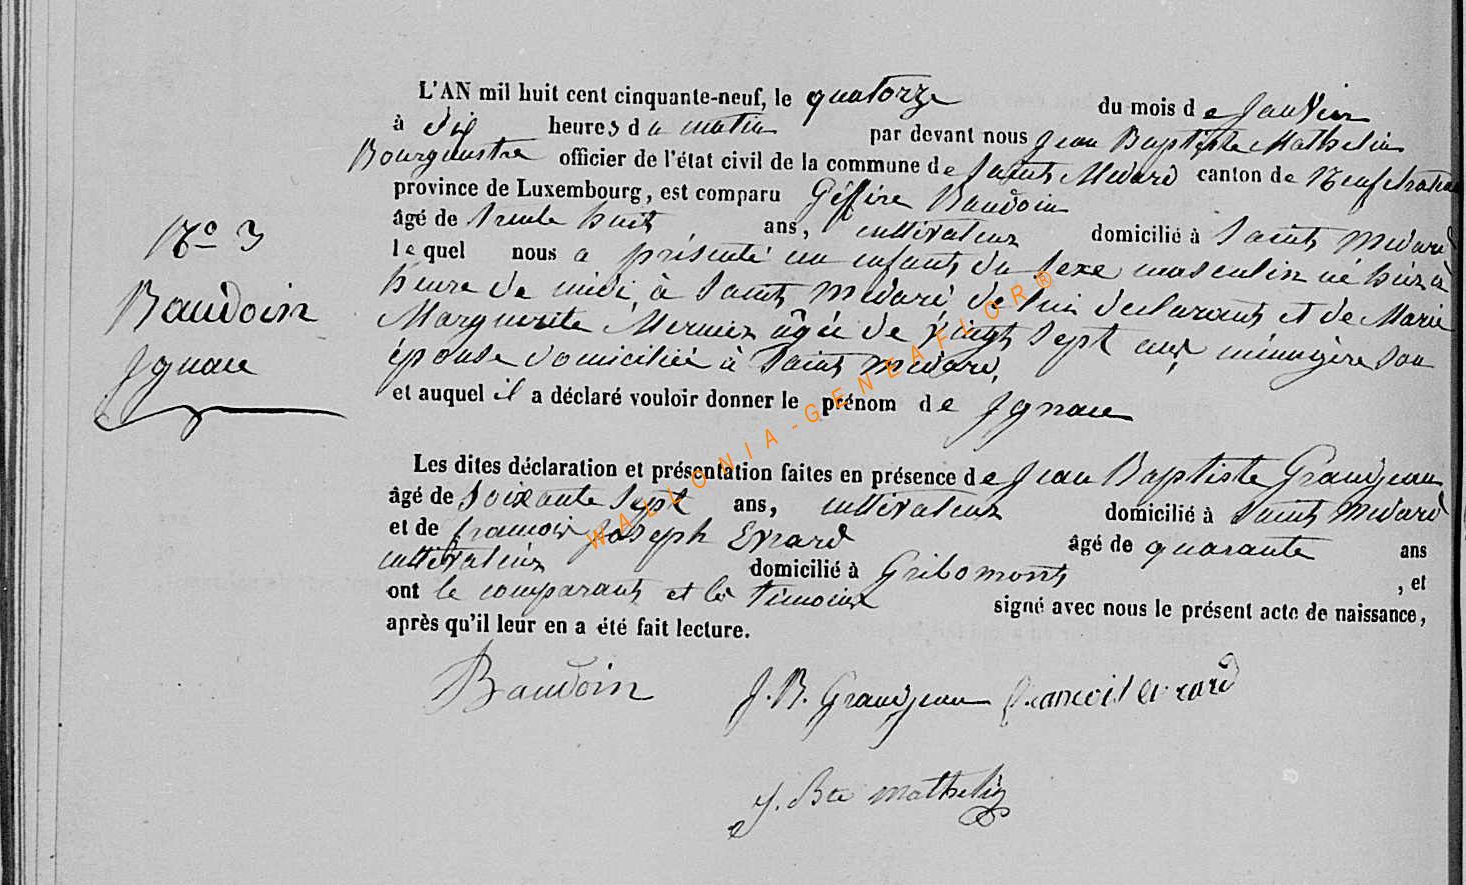 L'AN mil huit cent cinquante-neuf, le quatorze du mois de Janvier
à dix heures du matin par devant nous Jean Baptiste Mathelin
Bourgmestre officier de l'état civil de la commune de Saint Médard canton de Neufchateau
province de Luxembourg, est comparu Baudoin
âgé de trente huit ans, cultivateur domicilié à Saint Médard
lequel nous a présenté un enfant du sexe masculin né hier à
heure de midi, à Saint Médard, de lui déclarant et de Marie
Marguerite âgée de vingt sept ans, ménagère son
épouse domiciliée à Saint Médard,
et auquel il a déclaré vouloir donner le prénom de Ignace
Nº 3
Baudoin
Ignace
Les dites déclaration et présentation faites en présence de Jean Baptiste Grandjean
âgé de soixante sept ans, cultivateur domicilié à Saint Médard
et de francois Joseph Evrard âgé de quarante ans
cultivateur domicilié à Gribomont , et
ont le comparant et les témoins signé avec nous le présent acte de naissance,
après qu'il leur en a été fait lecture.
Baudoin J. B. Grandjean francois Evrard
J. Bte mathelin
WALLONIA-GENEAFLOR®